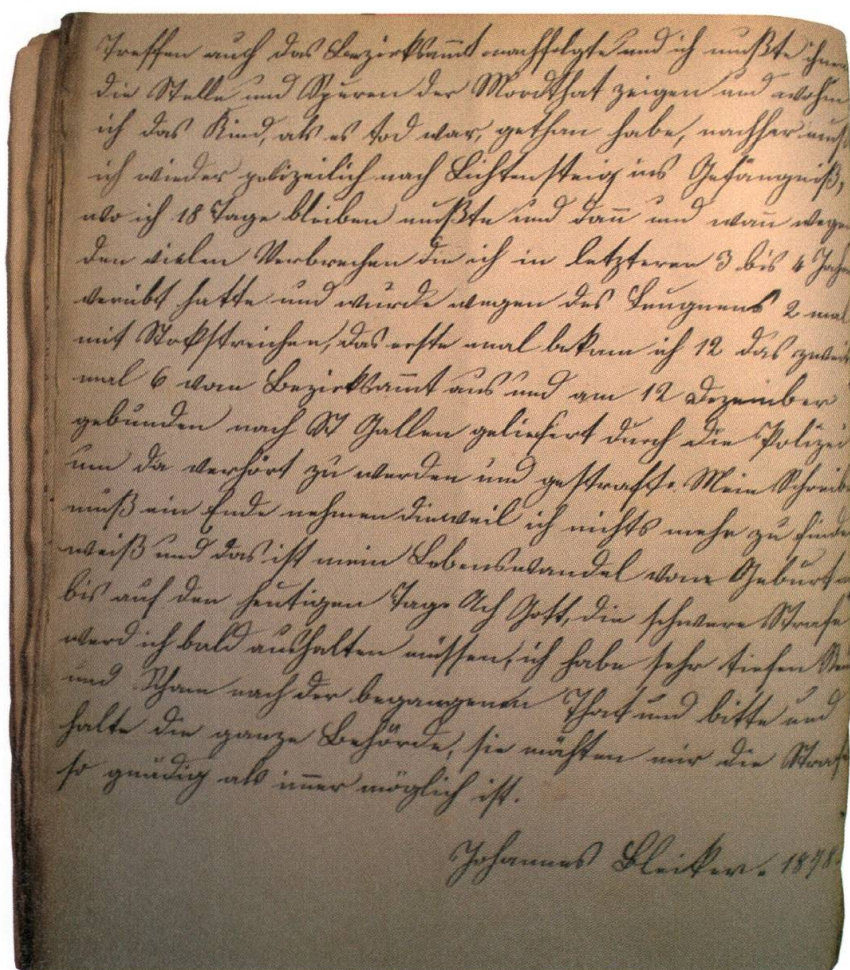 Treffen auch das Bezirksammt nachfolgte und ich mußte ihnen
die Stelle und Spuren der Mordthat zeigen und wohin
ich das Kind, als es tod war, gethan habe, nachher
ich wieder polizeilich nach Lichtensteig ins Gefängniß,
wo ich 18 Tage bleiben mußte und dan̄ und wan̄ wegen
den vielen Verbrechen die ich in letzteren 3 bis 4 Jahren
verübt hatte und wurde wegen des Leugnens 2 mal
mit Stokstreichen, das erste mal bekam ich 12 das zweite
mal 6 vom Bezirksammt aus und am 12 Dezember
gebunden nach St Gallen geliefert durch die Polizei
um da verhört zu werden und gestraft. Mein Schreiben
muß ein Ende nehmen dieweil ich nichts mehr zu finden
weiß und das ist mein Lebenswandel vom Geburt
bis auf den heutigen Tag. Ach Gott, die schwere Strafe
werd ich bald aushalten müssen, ich habe sehr tiefen
und Scham nach der begangenen That und bitte und
halte die ganze Behörde, sie möchten mir die Strafe
so gnädig als im̄er möglich ist.
Johannes Bleiker. 1878.